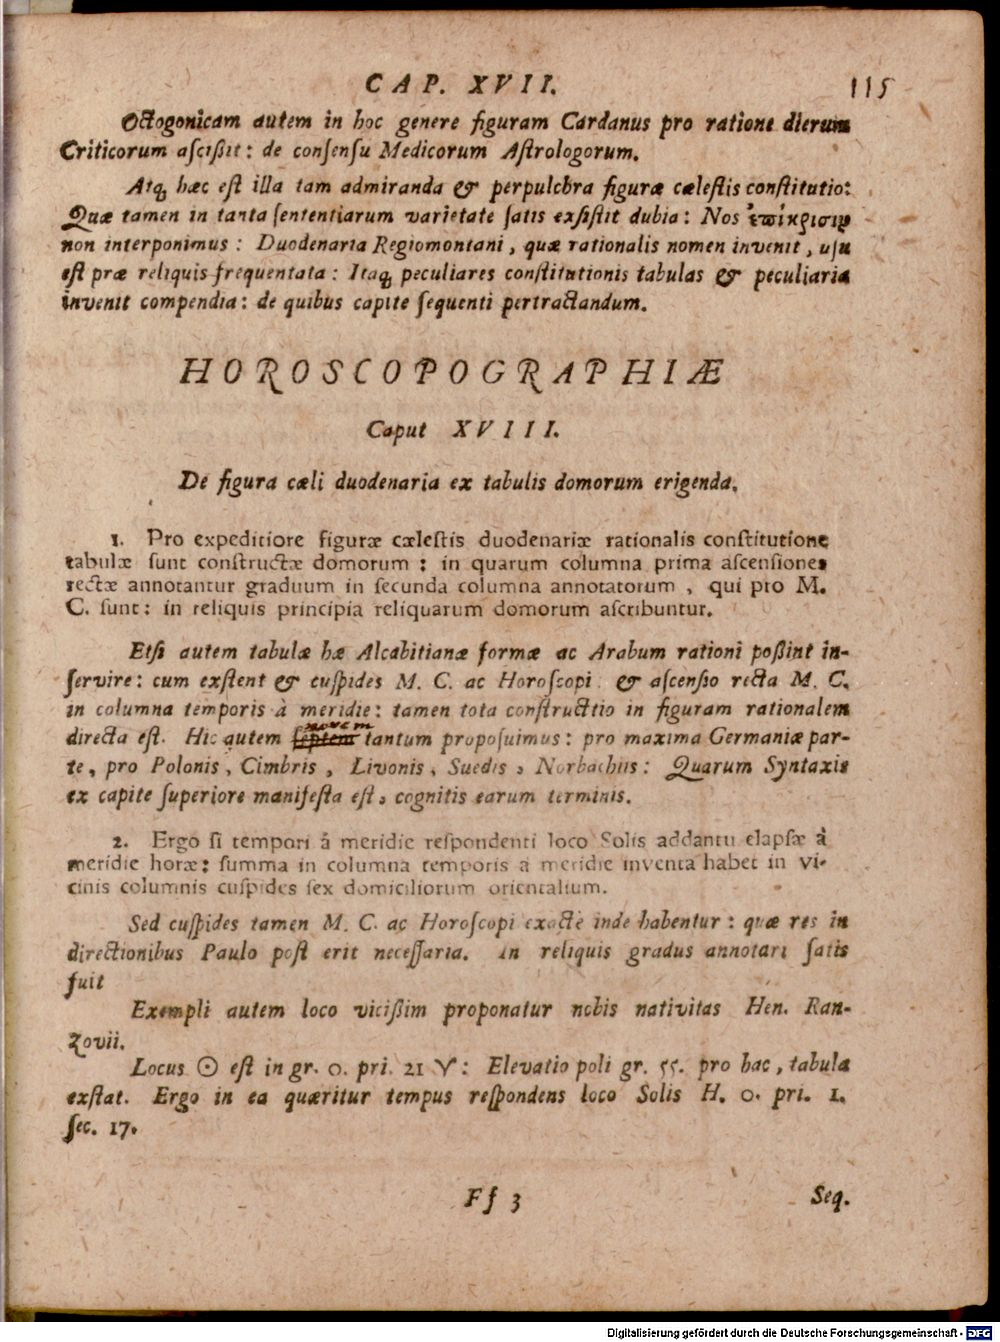 CAP. XVII. 115
Octogonicam autem in hoc genere figuram Cardanus pro ratione dierum
Criticorum ascißit: de consensu Medicorum Astrologorum.
Atq́; hæc est illa tam admiranda & perpulchra figuræ cælestis constitutio:
Quæ tamen in tanta sententiarum varietate satis exsistit dubia: Nos ἐπίκρισιν
non interponimus: Duodenaria Regiomontani, quæ rationalis nomen invenit, usu
est præ reliquis frequentata: Itaq́; peculiares constitutionis tabulas & peculiaria
invenit compendia: de quibus capite sequenti pertractandum.
HOROSCOPOGRAPHIÆ
Caput XVIII.
De figura cæli duodenaria ex tabulis domorum erigenda.
1. Pro expeditiore figuræ cælestis duodenariæ rationalis constitutione
tabulæ sunt constructæ domorum: in quarum columna prima ascensiones
rectæ annotantur graduum in secunda columna annotatorum, qui pro M.
C. sunt: in reliquis principia reliquarum domorum ascribuntur.
Etsi autem tabulæ hæ Alcabitianæ formæ ac Arabum rationi poßint in-
servire: cum exstent & cuspides M. C. ac Horoscopi & ascensio recta M. C.
in columna temporis à meridie: tamen tota constructtio in figuram rationalem
novem
directa est. Hic autem septem tantum proposuimus: pro maxima Germaniæ par-
te, pro Polonis, Cimbris, Livonis, Suedis, Norbachiis: Quarum Syntaxis
ex capite superiore manifesta est, cognitis earum terminis.
2. Ergo si tempori á meridie respondenti loco Solis addantu elapsæ à
meridie horæ: summa in columna temporis a meridie inventa habet in vi-
cinis columnis cuspides sex domiciliorum orientalium.
Sed cuspides tamen M. C. ac Horoscopi exacte inde habentur: quæ res in
directionibus Paulo post erit necessaria. in reliquis gradus annotari satis
fuit
Exempli autem loco vicißim proponatur nobis nativitas Hen. Ran-
zovii.
Locus ☉ est in gr. 0. pri. 21 ♈: Elevatio poli gr. 55. pro hac, tabula
exstat. Ergo in ea quæritur tempus respondens loco Solis H. 0. pri. 1.
sec. 17.
Ff 3 Seq.
Digitalisierung gefördert durch die Deutsche Forschungsgemeinschaft - DFG